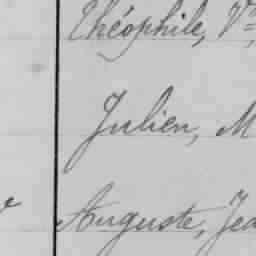 Théophile, V
Julien, M
Auguste, Jea